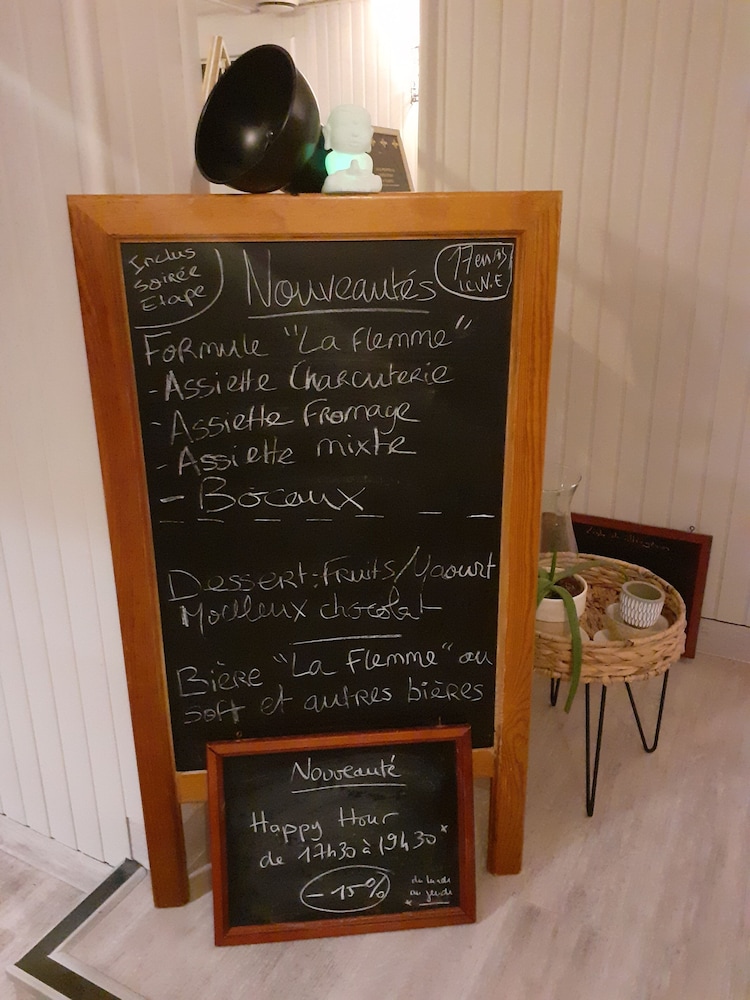 Inclus
Soirée
Etape
Nouveautés
17€
le W.E
Formule "La flemme"
- Assiette Charcuterie
- Assiette fromage
- Assiette mixte
- Bocaux
Dessert: Fruits/Yaourt
Moelleux chocolat
Bière "La flemme" ou
soft et autres bières
Nouveauté
Happy Hour
de 17h30 à 19h30*
- 15%
du lundi
au jeudi
*